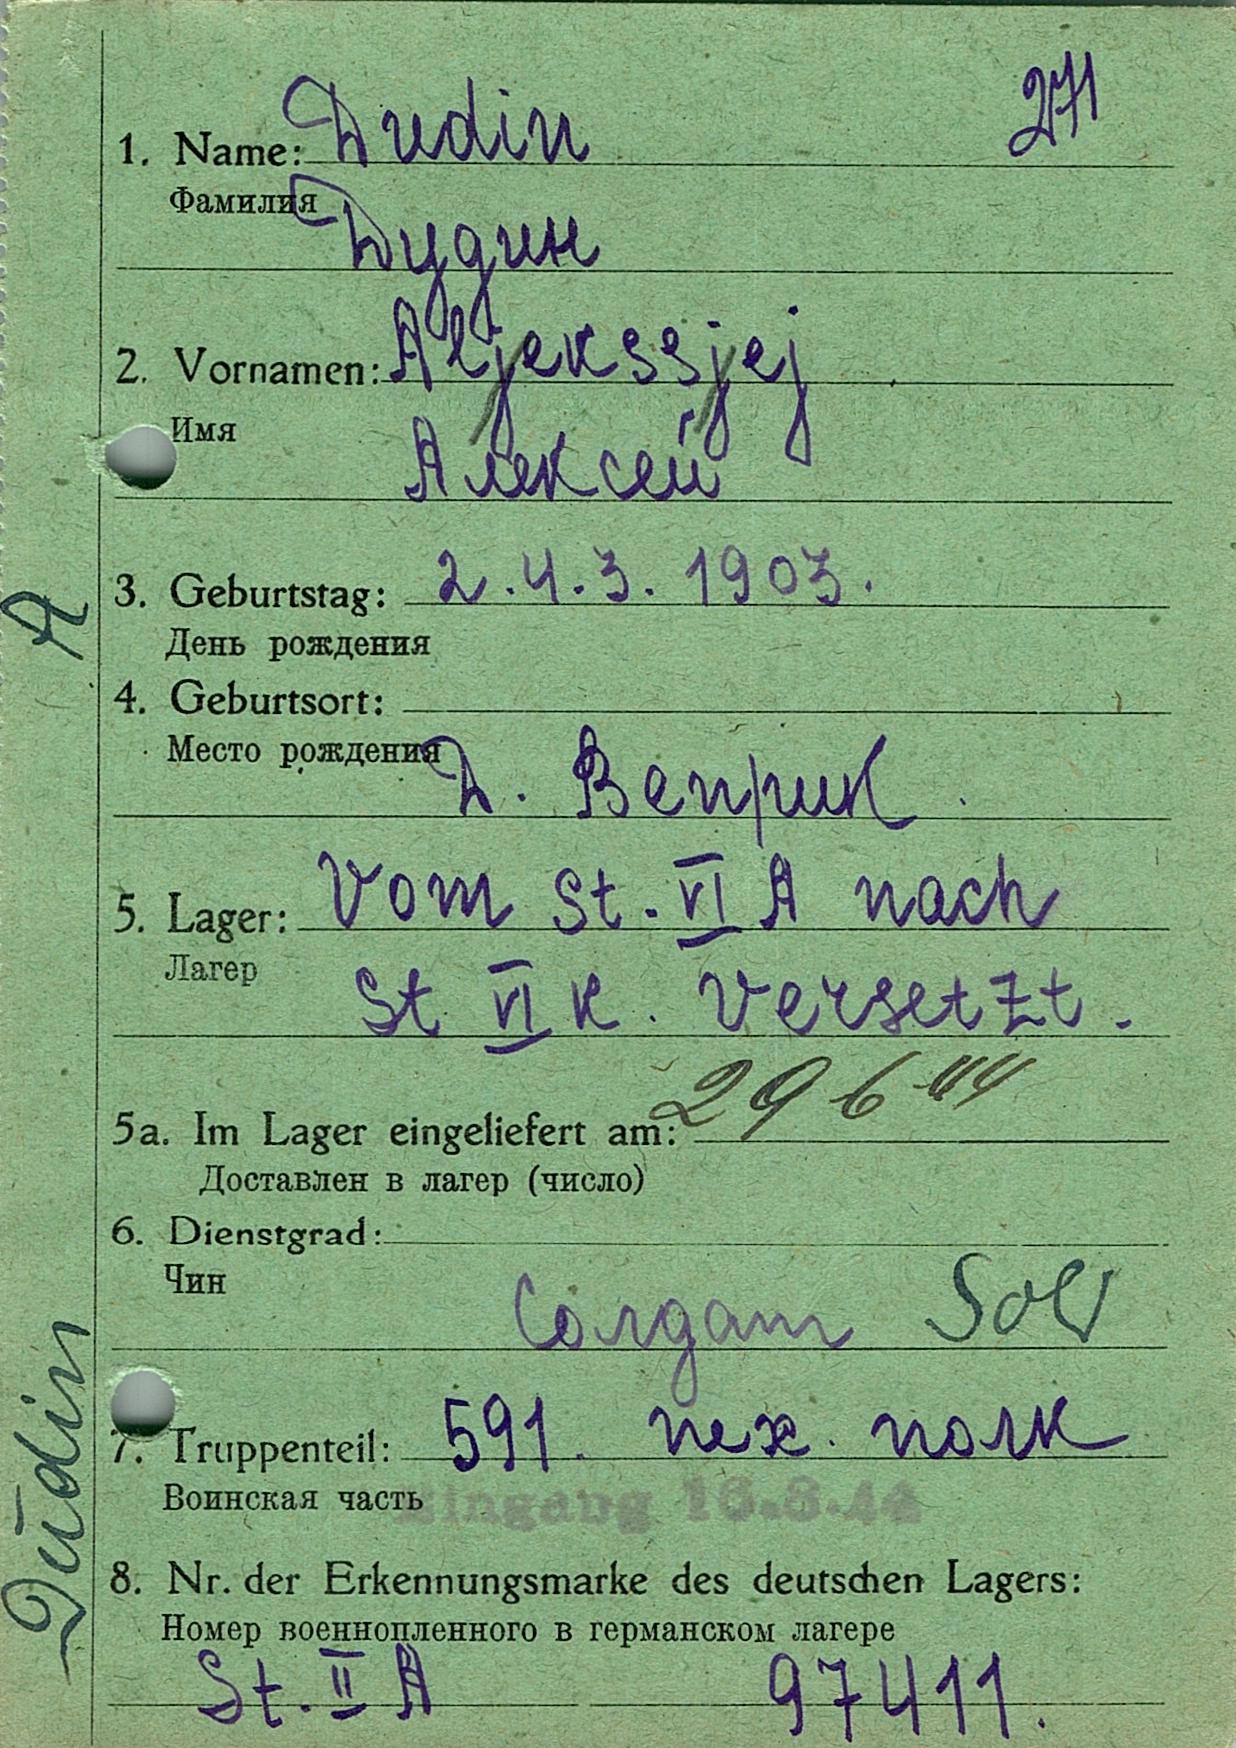 271
1. Name: Dudin
Фамилия
Дудин
2. Vornamen: Aljekssjej
Имя
Алексей
3. Geburtstag: 2.4.3. 1903.
День рождения
4. Geburtsort:
Место рождения
Д. Веприк
5. Lager: Vom St. VI A nach
Лагер
St VI K. versetzt.
5a. Im Lager eingeliefert am: 29 6 44
Доставлен в лагер (число)
6. Dienstgrad:
Чин
Солдат Sol
7. Truppenteil: 591. пех. полк
Воинская часть
Eingang
8. Nr. der Erkennungsmarke des deutschen Lagers:
Номер военнопленного в германском лагере
St. II A 97411.
A
Dudin